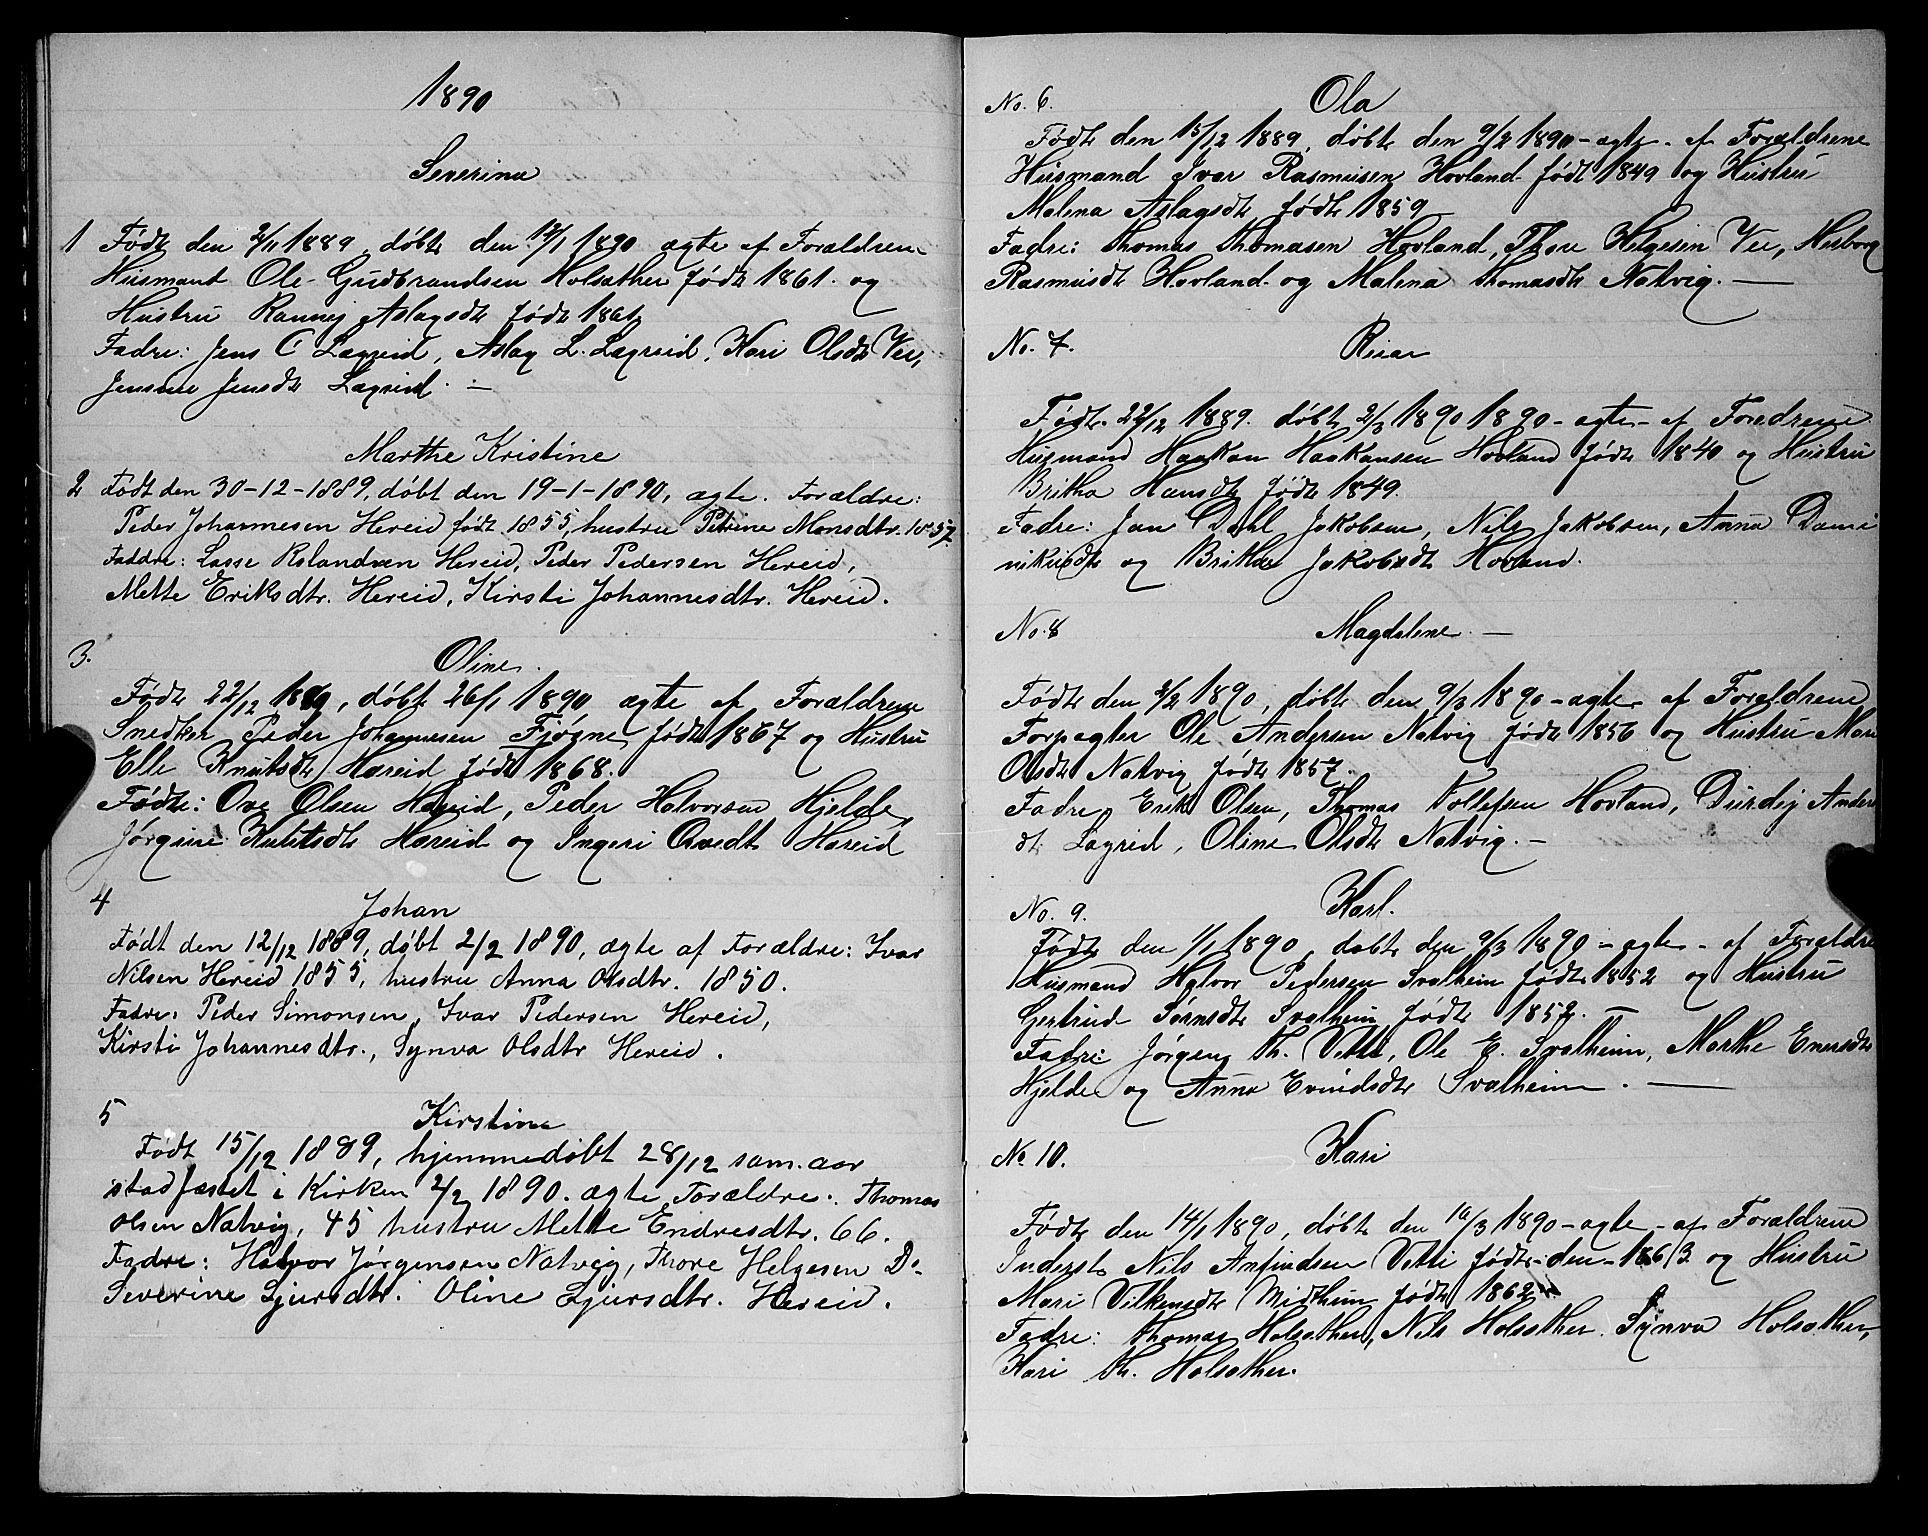 1890
Severina
1 Født den 2/11 1889, døbt den 12/1 1890 ægte af Forældrene
Husmand Ole Gudbrandsen Holsæther født 1861. og
Hustru Rannei Aslagsdt født 1861.
Fadre: Jens C Lægreid, Aslag L. Lægreid, Kari Olsdt Vee,
Jensine Jensdt Lægreid. —
Marthe Kristine
2 Født den 30-12-1889, døbt den 19-1-1890, ægte. Forældre:
Peder Johannesen Hereid født 1855, hustru Petrine Monsdtr. 1857.
Faddre: Lasse Hereid, Peder Pedersen Hereid,
Mette Eriksdtr. Hereid, Kirsti Johannesdtr. Hereid.
3. Oline.
Født 22/12 1889, døbt 26/1 1890 ægte af Forældrene
Snedker Peder Johannesen Fjøgne født 1867 og Hustru
Elle Knutsdt Hæreid født 1868.
Ove Olsen Hæreid, Peder Halvorsen Hjelde,
Jørgine Hæreid og Ingeri Ovedt Hæreid
4 Johan
Født den 12/12 1889, døbt 2/2 1890, ægte af Forældre: Ivar
Nilsen Hereid 1855, hustru Anna Olsdtr. 1850.
Fadre: Peder Simonsen, Ivar Pedersen Hereid,
Kirsti Johannesdtr., Synva Olsdtr Hereid.
5 Kirstine
Født 15/12 1889, hjemmedøbt 28/12 sam. aar
stadfæstet i Kirken 2/2 1890. ægte Forældre: Thomas
Olsen Natvig, 45 hustru Mette Endresdtr. 66.
Fadre: Halvor Jørgensen Natvig, Thore Helgesen Do.
Severine Sjursdtr. Oline Sjursdtr. Hereid.
No. 6. Ola
Født den 15/12 1889, døbt den 9/2 1890 - ægte - af Forældrene
Husmand Ivar Rasmusen Hovland født 1849 og Hustru
Malena Aslagsdt født 1859
Fadre: Thomas Thomasen Hovland, Thore Helgesen Vee, Herborg
Rasmusdt Hovland og Malena Thomasdt Natvig. —
No. 7. Reiar
Født 22/12 1889. døbt 2/3 1890 1890 - ægte - af Foredrene
Husmand Haakon Haakonsen Hovland født 1840 og Hustru
Britha Hansdt født 1849.
Fadre: Jan Dahl Jakobsen, Nils Jakobsen, Anna Domi
nikusdt og Britha Jakobsdt Hovland.
No. 8 Magdalene. —
Født den 2/2 1890, døbt den 9/3 1890 - ægte - af Forældrene
Forpagter Ole Andersen Natvig født 1856 og Hustru Mari
Olsdt Natvig født 1857.
Fadre Erik Olsen, Thomas Tollefsen Hovland, Durdej Anders
dt. Lægreid, Oline Olsdt Natvig. —
No. 9. Karl.
Født den 1/1 1890, døbt den 9/3 1890 - ægte - af Forældre
Husmand Halvor Pedersen Svalheim født 1852 og Hustru
Gertrud Sørnsdt Svalheim født 1852. —
Fadre: Jørgen Th. Vetti, Ole E. Svalheim, Marthe Enersdt
Hjelde og Anna Evindsdt Svalheim. —
No. 10. Kari
Født den 14/1 1890, døbt den 16/3 1890 - ægte - af Forældrene
Inderst Nils Anfindsen Vetti født - den - 1863 og Hustru
Mari Vilkensdt Midthun født 1862
Fadre: Thomas Holsæther, Nils Holsæther. Synva Holsæther,
Kari Th. Holsæther.